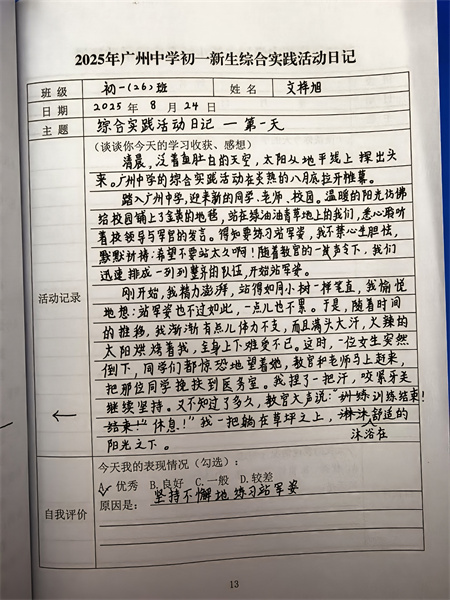 2025年广州中学初一新生综合实践活动日记
班 级 初一(26)班 姓 名 文梓旭
日 期 2025 年 8 月 24 日
主 题 综合实践活动日记 — 第一天
(谈谈你今天的学习收获、感想)
清晨，泛着鱼肚白的天空，太阳从地平线上探出头
来。广州中学的综合实践活动在炎热的八月底拉开帷幕。
踏入广州中学，迎来新的同学、老师、校园。温暖的阳光仿佛
给校园铺上了金黄的地毯，站在绿油油青草地上的我们，悉心聆听
着校领导与军官的发言。得知要练习站军姿，我不禁心生胆怯，
默默祈祷：希望不要站太久啊！随着教官的一声令下，我们
迅速排成一列列整齐的队伍，开始站军姿。
刚开始，我精力澎湃，站得如同小树一样笔直，我愉悦
地想：站军姿也不过如此，一点儿也不累。于是，随着时间
的推移，我渐渐有点儿体力不支，而且满头大汗，火辣的
太阳烘烤着我，全身上下难受不已。这时，一位女生突然
倒下，同学们都惊恐地望着她，教官和老师马上赶来，
把那位同学搀扶到医务室。我捏了一把汗，咬紧牙关
继续坚持。又不知过了多久，教官大声说：“训练训练结束！
结束！”“休息！”我一把躺在草坪之上，淋沐舒适的
沐浴在
阳光之下。
活动记录
今天我的表现情况（勾选）：
A. 优秀 B.良好 C.一般 D.较差
原因是： 坚持不懈地练习站军姿
自我评价
13